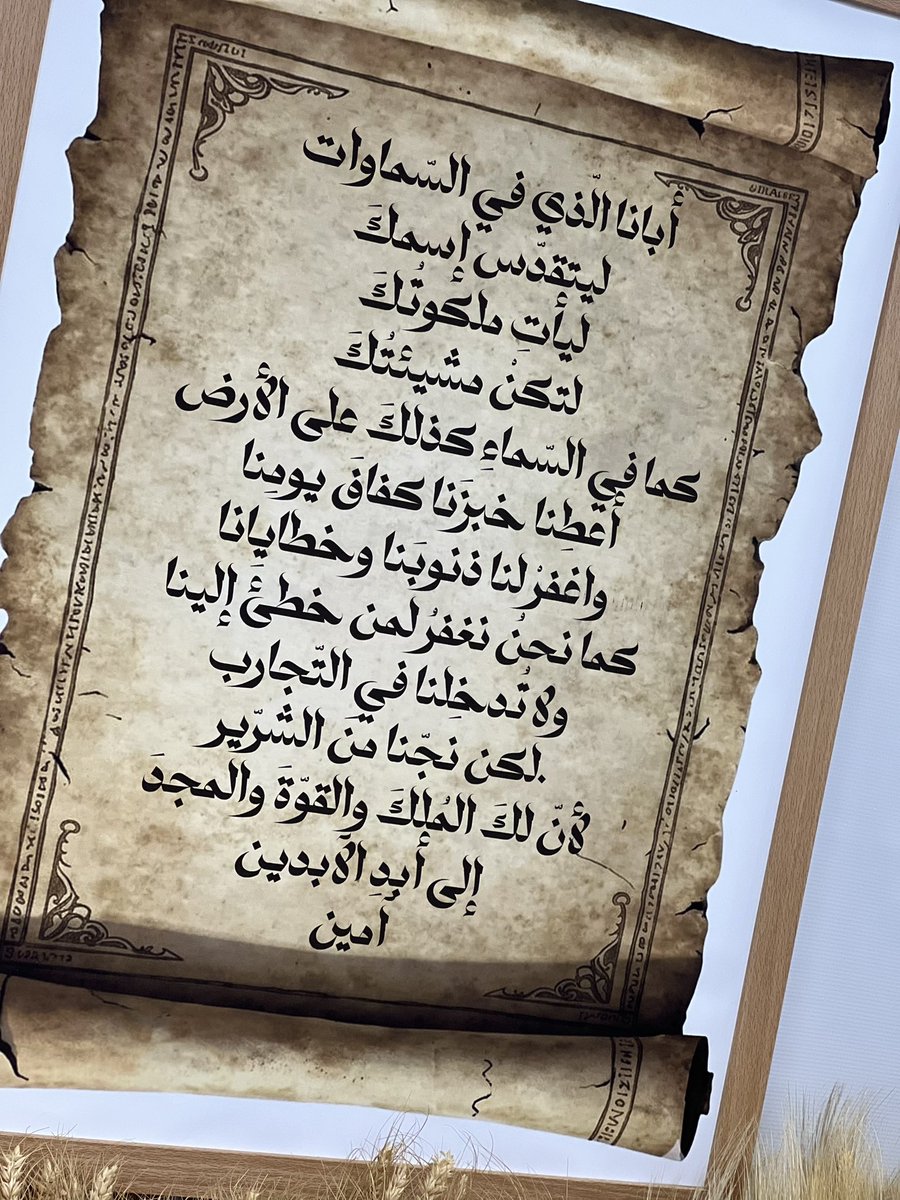 أبانا الّذي في السّماوات
ليتقدّس إسمكَ
ليأتِ ملكوتُكَ
لتكنْ مشيئتُكَ
كما في السّماءِ كذلكَ على الأرض
أعطِنا خبزَنا كفافَ يومِنا
واغفرْ لنا ذنوبَنا وخطايانا
كما نحنُ نغفرُ لمن خطئَ إلينا
ولا تُدخِلنا في التّجارب
لكن نجّنا منَ الشرّير.
لأنّ لكَ المُلكَ والقوّةَ والمجدَ
إلى أبدِ الآبدين
آمين